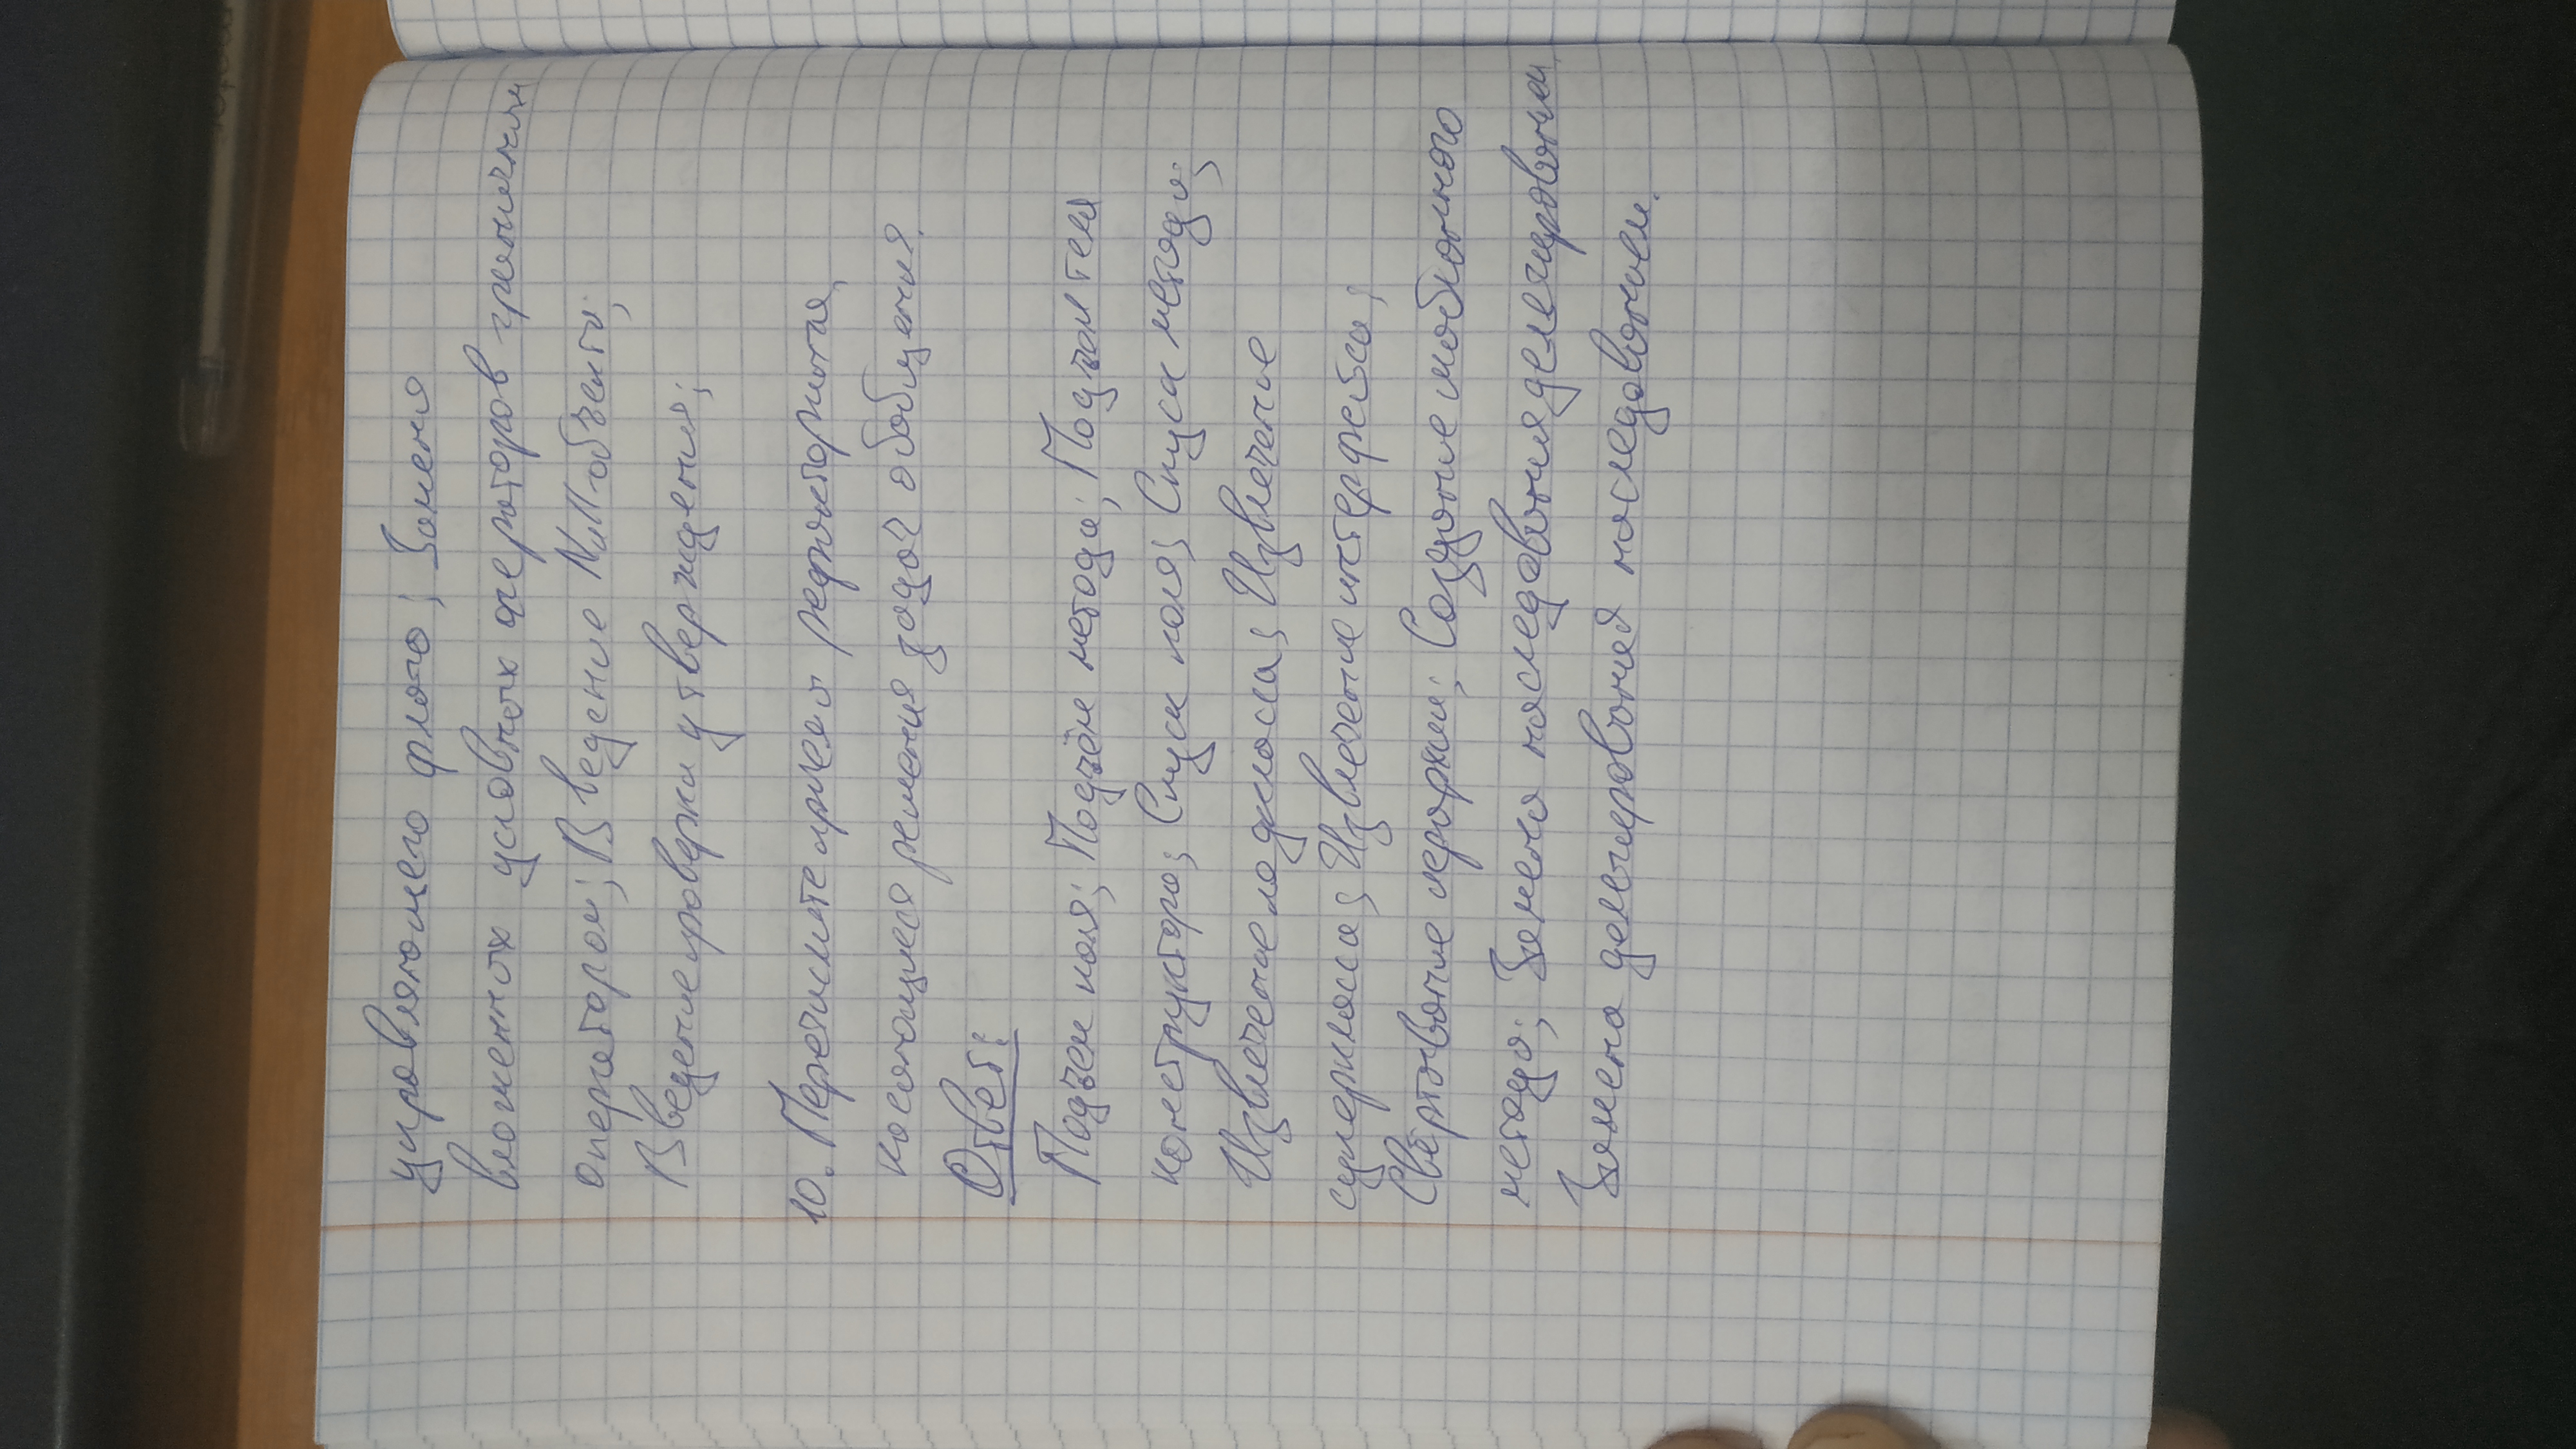 управляющего флага; Замена
вложенных условных операторов граничным
оператором; Введение Null-объекта;
Введение проверки утверждения;
10. Перечислите приёмы рефакторинга,
касающиеся решения задач обобщения.
Ответ:
Подъем поля; Подъём метода; Подъем тела
конструктора; Спуск поля; Спуск метода;
Извлечение подкласса; Извлечение
суперкласса; Извлечение интерфейса;
Свёртывание иерархии; Создание шаблонного
метода; Замена наследования делегированием,
Замена делегирования наследованием.